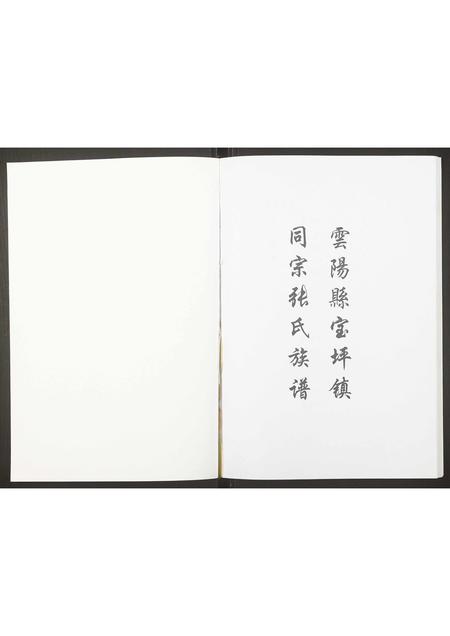 雲陽縣宝坪镇
同宗张氏族谱